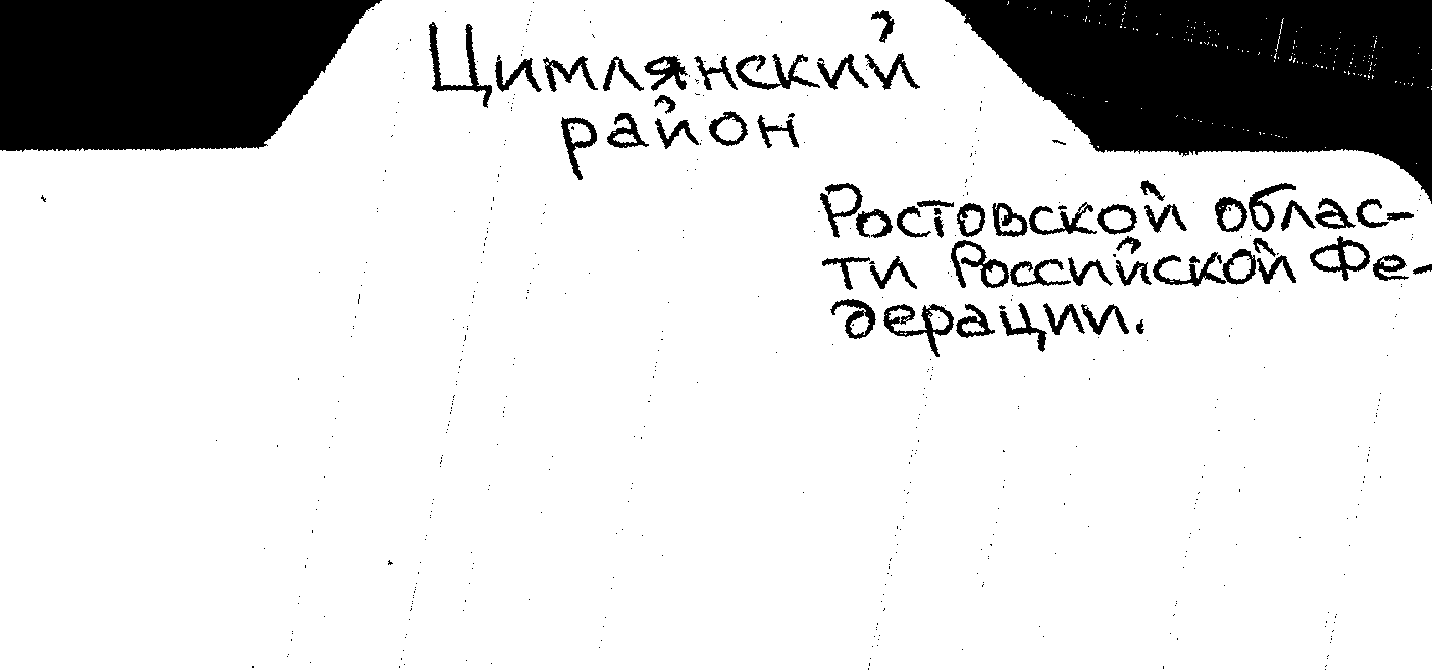 Цимлянский
район
Ростовской облас-
ти Российской Фе-
дерации.